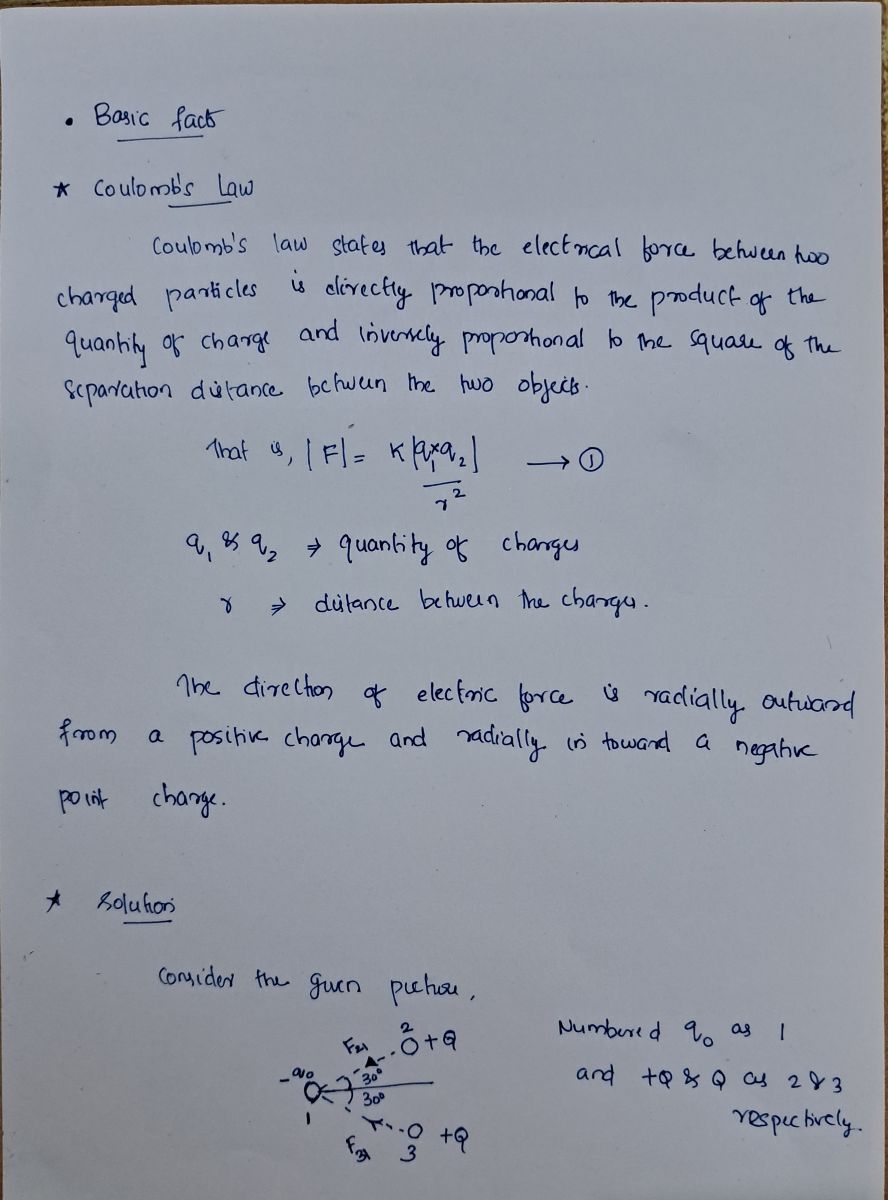 • Basic facts
* Coulomb's Law
Coulomb's law states that the electrical force between two
charged particles is directly proportional to the product of the
quantity of charge and inversely proportional to the square of the
separation distance between the two objects.
That is, |F| = K|q₁×q₂| → ①
r²
q₁ & q₂ ⇒ quantity of charges
r ⇒ distance between the charges.
The direction of electric force is radially outward
from a positive charge and radially in toward a negative
point charge.
* Solution
Consider the given picture,
Numbered q₀ as 1
and +Q & Q as 2 & 3
respectively.
2
F₂₁ +Q
-q₀ 30°
30°
1
F₃₁ 3 +Q